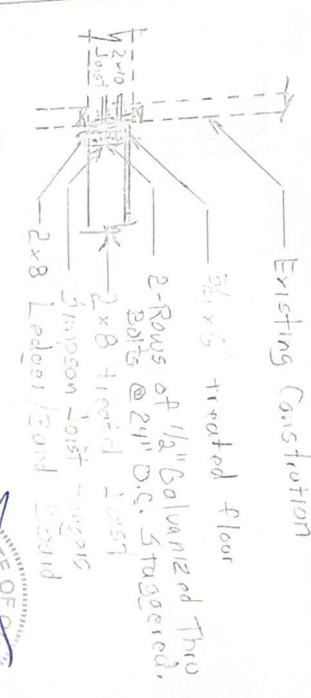 Existing Constrution
5/4 x 6" treated floor
2-Rows of 1/2" Galvanized Thru
Bolts @ 24" O.C. Staggered.
2x8 treated Joist
Simpson Joist Hangers
2x8 Ledger/Band Board
2x10
Joist
E OF